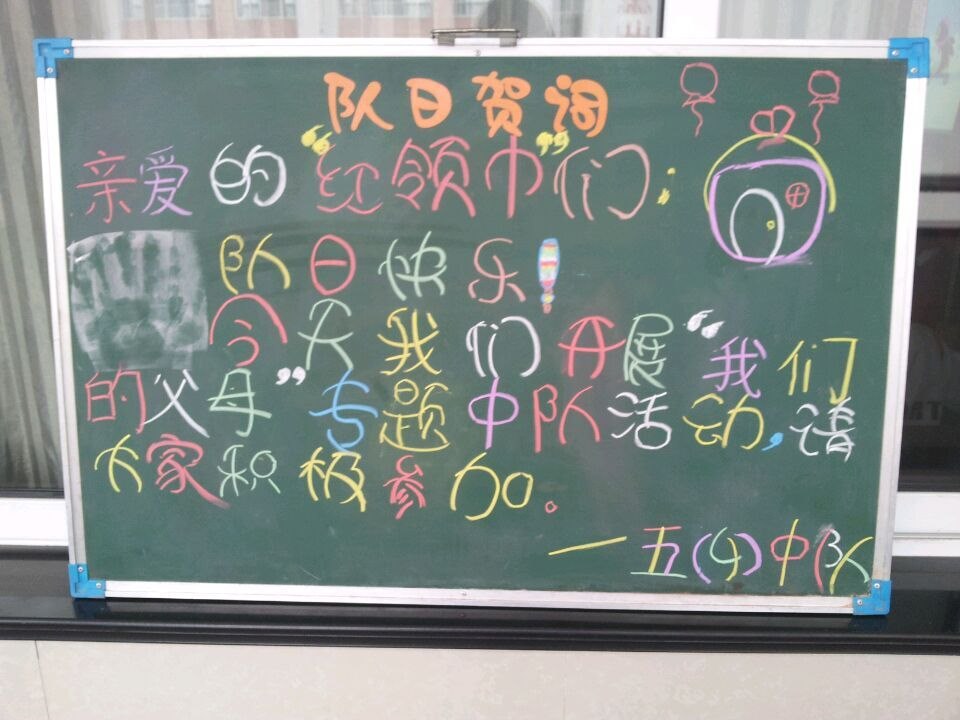 队日贺词
亲爱的“红领巾”们：
队日快乐！
今天我们开展“我们
的父母”专题中队活动，请
大家积极参加。
—五(4)中队